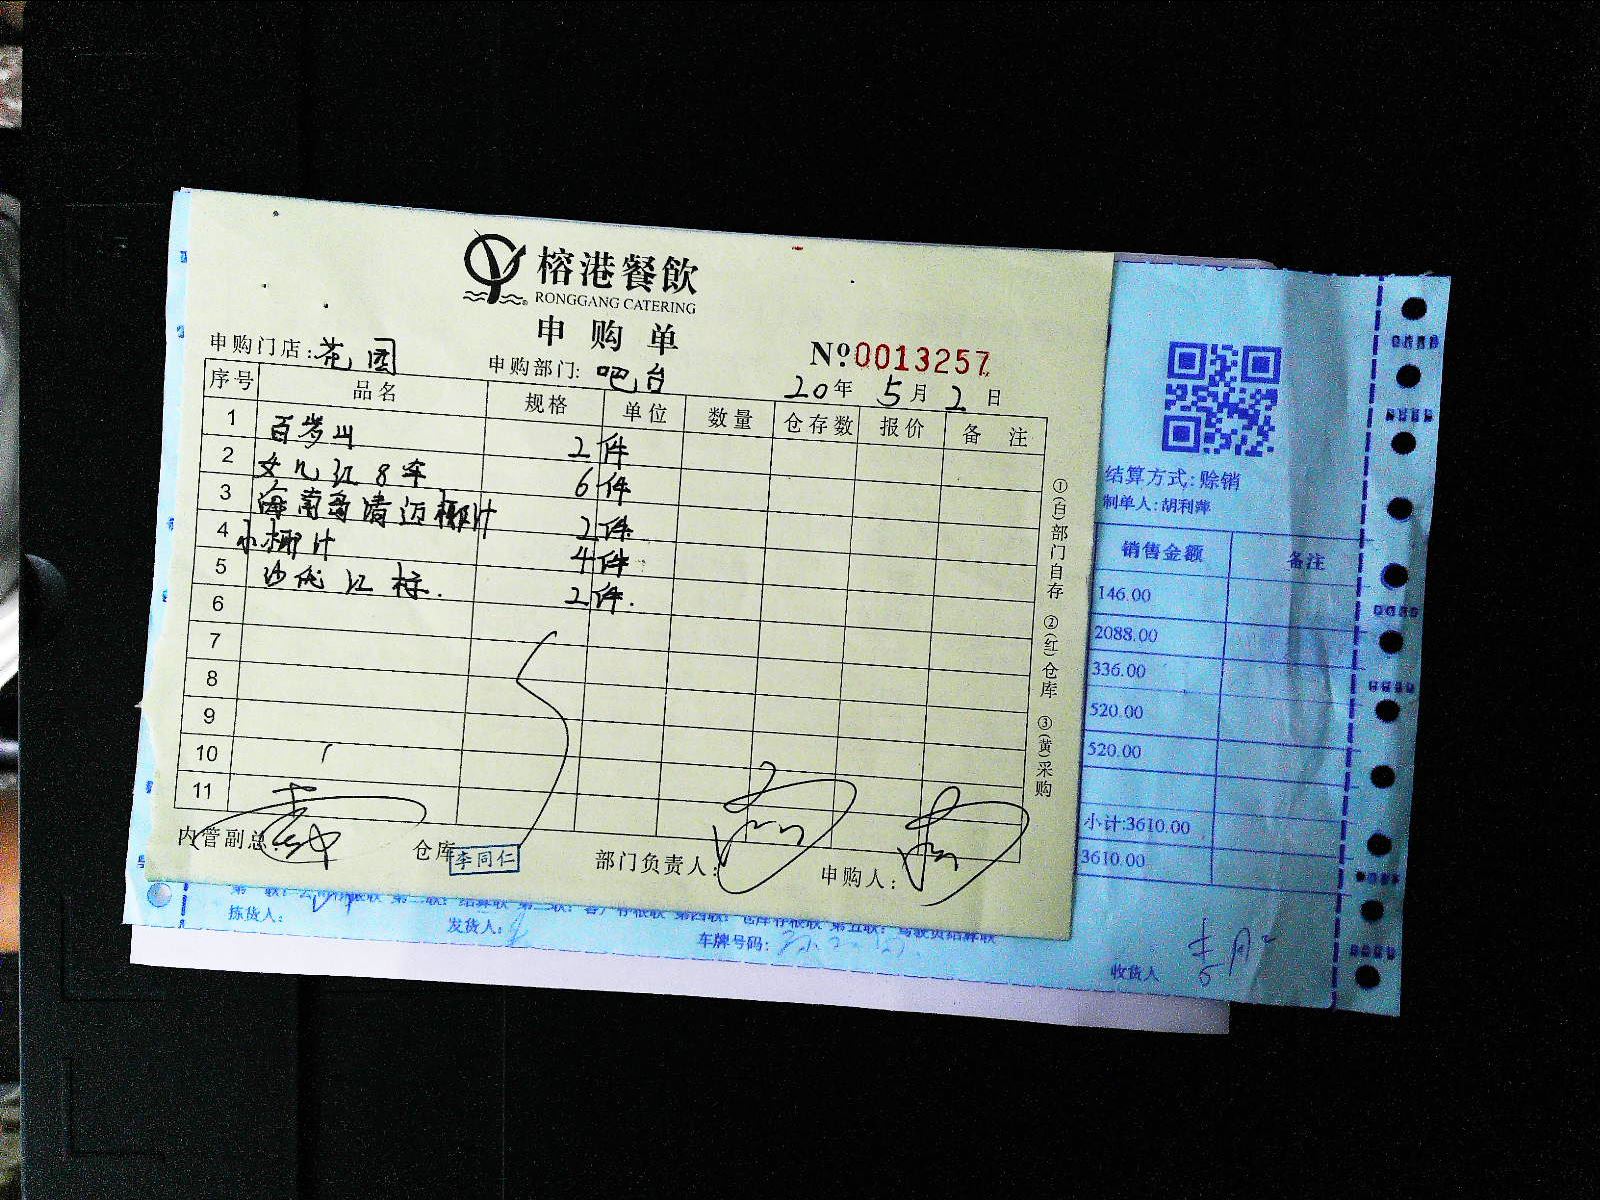 榕港餐飲
RONGGANG CATERING
申购单
№0013257
申购门店:花园
申购部门:吧台
20年5月2日
序号 品名 规格 单位 数量 仓存数 报价 备注
1 百岁山 2件
2 女儿红8年 6件
3 海南岛清迈椰汁 2件
4 小椰汁 4件
5 沙优红标. 2件.
6
7
8
9
10
11
①(白)部门自存 ②(红)仓库 ③(黄)采购
内管副总:
仓库 李同仁
部门负责人:
申购人:
结算方式:赊销
制单人:胡利萍
销售金额 备注
146.00
2088.00
336.00
520.00
520.00
小计:3610.00
3610.00
拣货人:
发货人:
车牌号码:
收货人